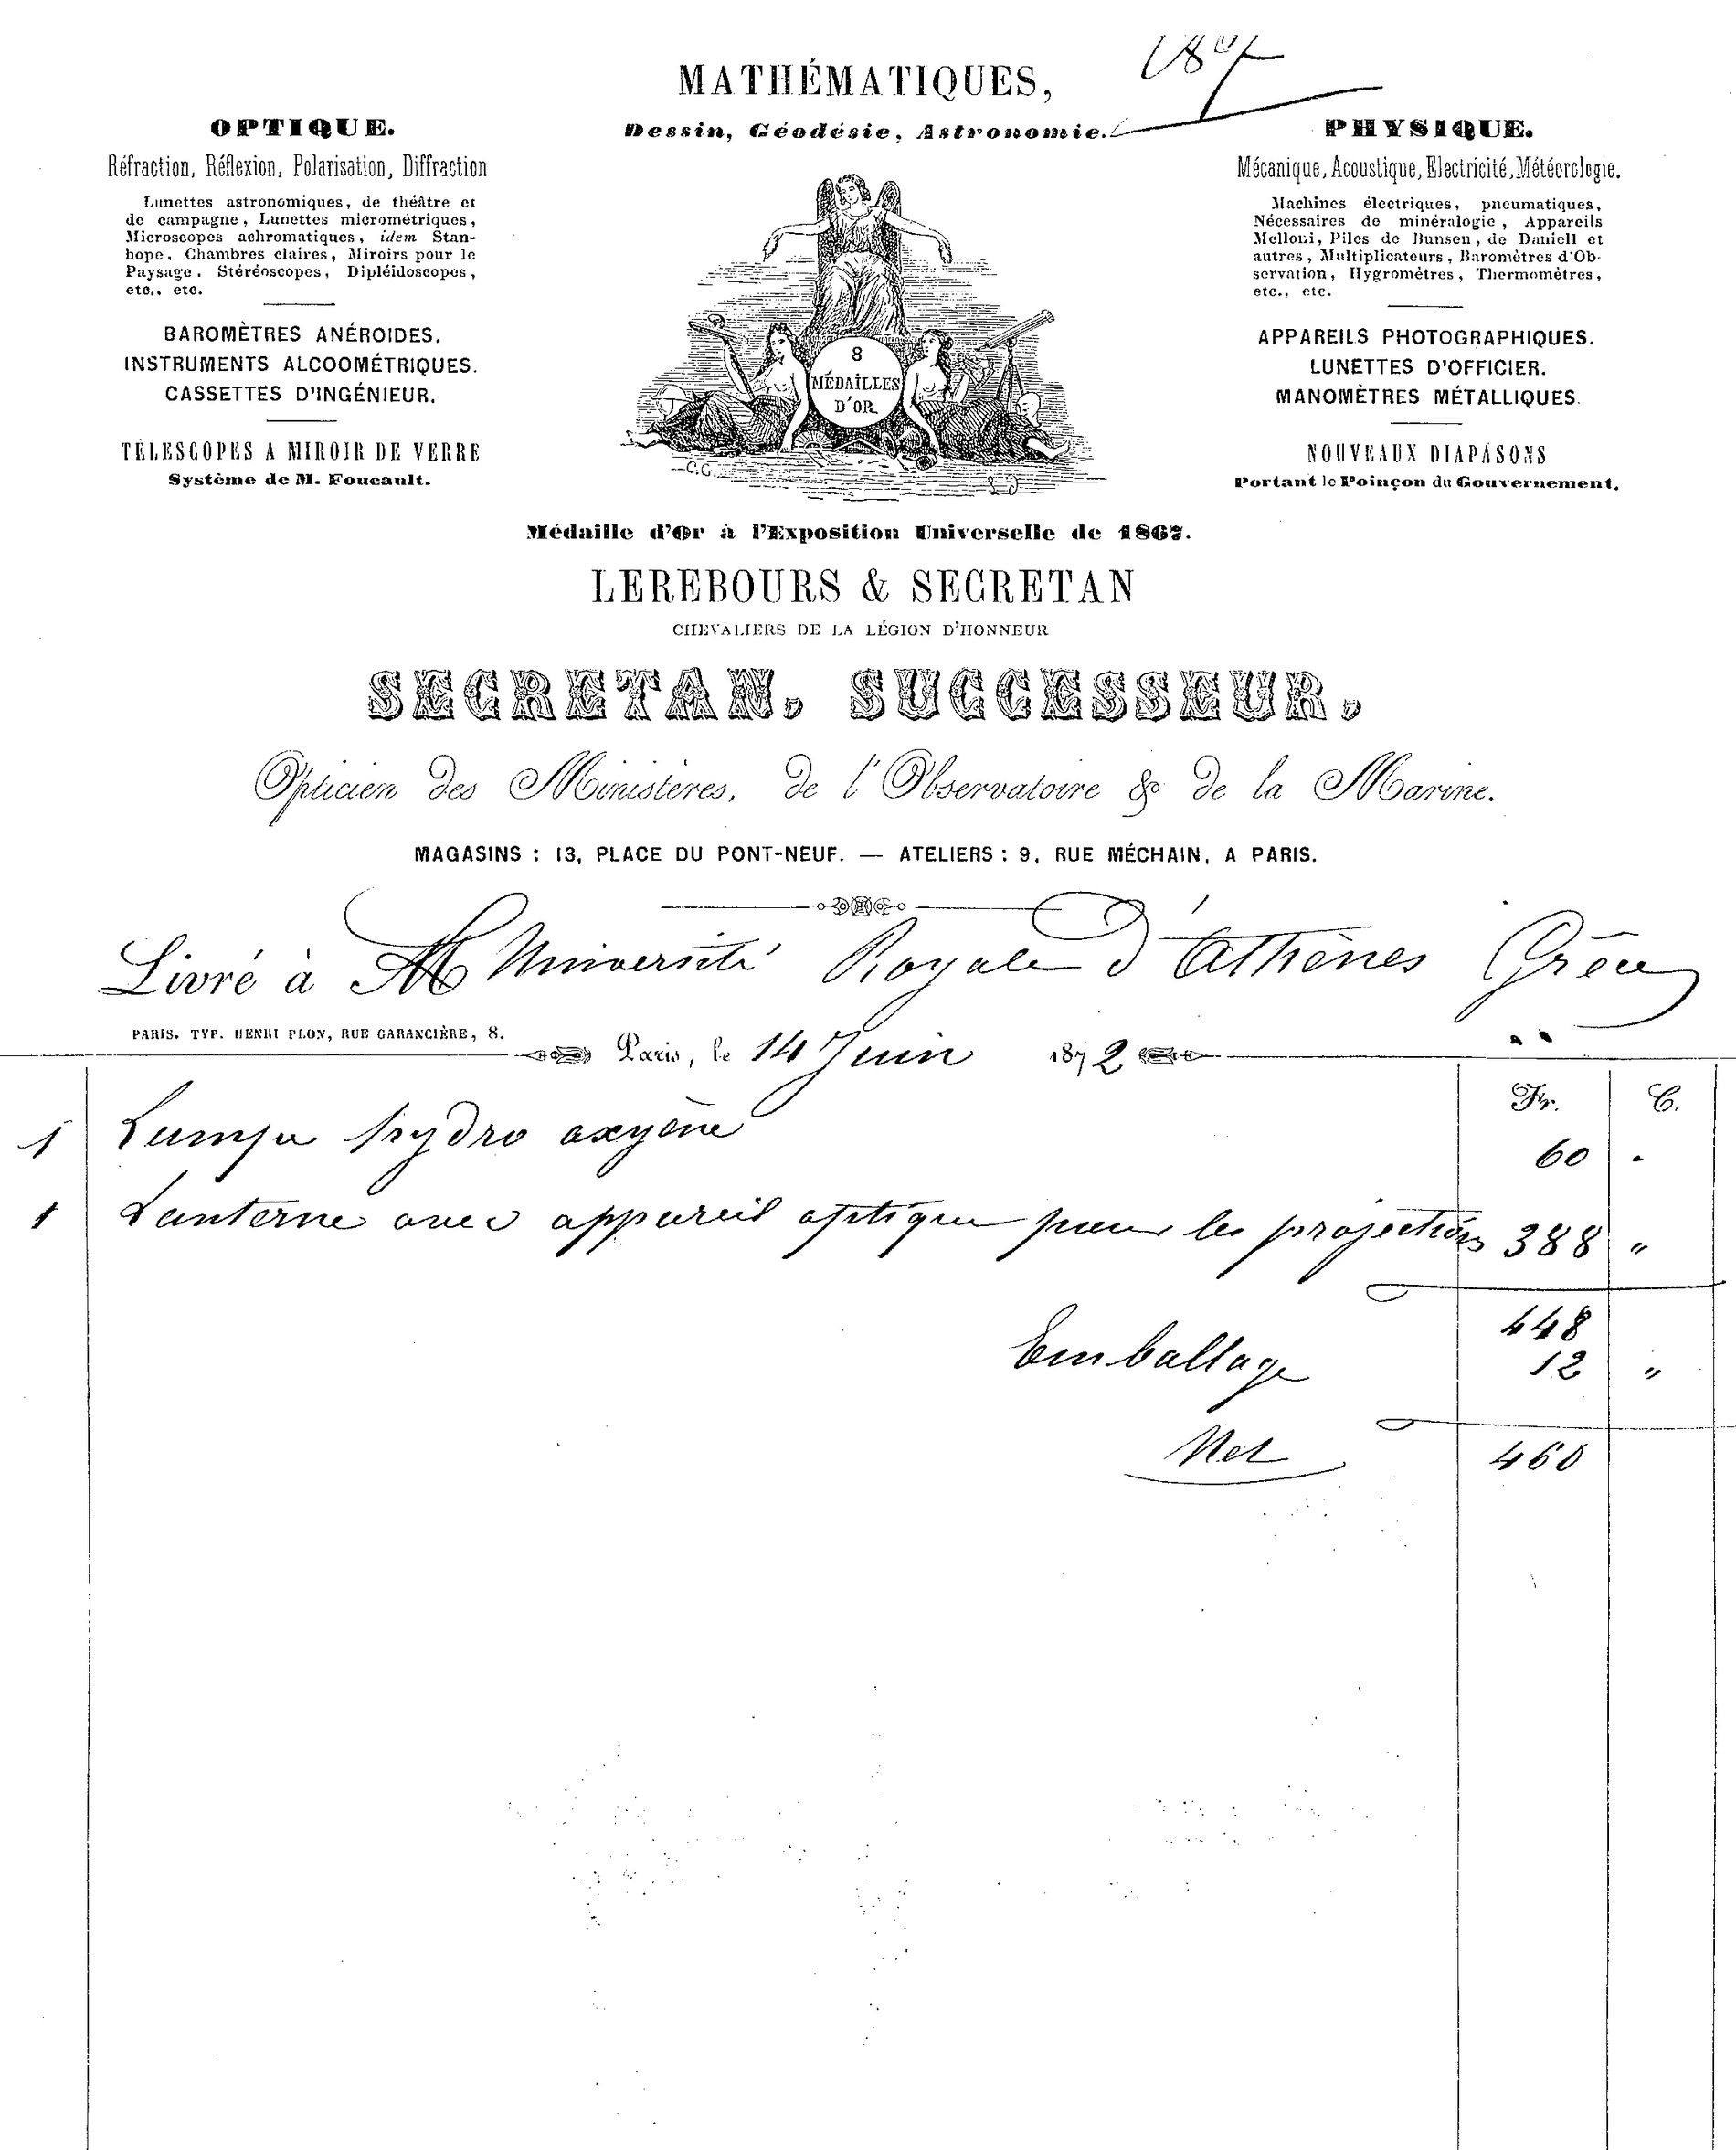 MATHÉMATIQUES,
Dessin, Géodésie, Astronomie.
OPTIQUE.
Réfraction, Réflexion, Polarisation, Diffraction
Lunettes astronomiques, de théâtre et
de campagne, Lunettes micrométriques,
Microscopes achromatiques, idem Stan-
hope, Chambres claires, Miroirs pour le
Paysage, Stéréoscopes, Dipléidoscopes,
etc., etc.
BAROMÈTRES ANÉROIDES.
INSTRUMENTS ALCOOMÉTRIQUES.
CASSETTES D'INGÉNIEUR.
TÉLESCOPES A MIROIR DE VERRE
Système de M. Foucault.
8
MÉDAILLES
D'OR
C.C.
PHYSIQUE.
Mécanique, Acoustique, Electricité, Météorologie.
Machines électriques, pneumatiques,
Nécessaires de minéralogie, Appareils
Melloni, Piles de Bunsen, de Daniell et
autres, Multiplicateurs, Baromètres d'Ob-
servation, Hygromètres, Thermomètres,
etc., etc.
APPAREILS PHOTOGRAPHIQUES.
LUNETTES D'OFFICIER.
MANOMÈTRES MÉTALLIQUES.
NOUVEAUX DIAPASONS
Portant le Poinçon du Gouvernement.
Médaille d'Or à l'Exposition Universelle de 1867.
LEREBOURS & SECRETAN
CHEVALIERS DE LA LÉGION D'HONNEUR
SECRETAN, SUCCESSEUR,
Opticien des Ministères, de l'Observatoire & de la Marine.
MAGASINS : 13, PLACE DU PONT-NEUF. — ATELIERS : 9, RUE MÉCHAIN, A PARIS.
Livré à M Université Royale d'Athènes Grèce
PARIS. TYP. HENRI PLON, RUE GARANCIÈRE, 8.
Paris, le 14 Juin 1872
Fr. C.
1 Lampe hydro oxyène 60 "
1 Lanterne avec appareil optique pour les projections 388 "
448
Emballage 12 "
Net 460